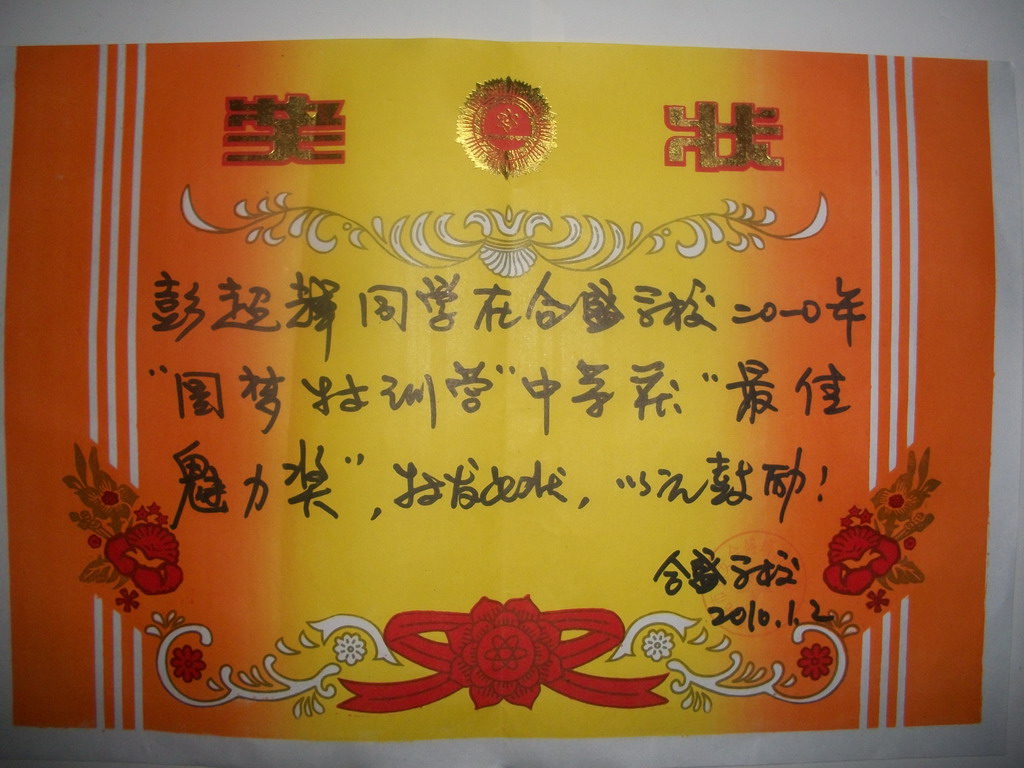 奖状
彭超辉同学在合盛学校二〇一〇年
“圆梦特训营”中荣获“最佳
魅力奖”，特发此状，以示鼓励！
合盛学校
2010.1.2